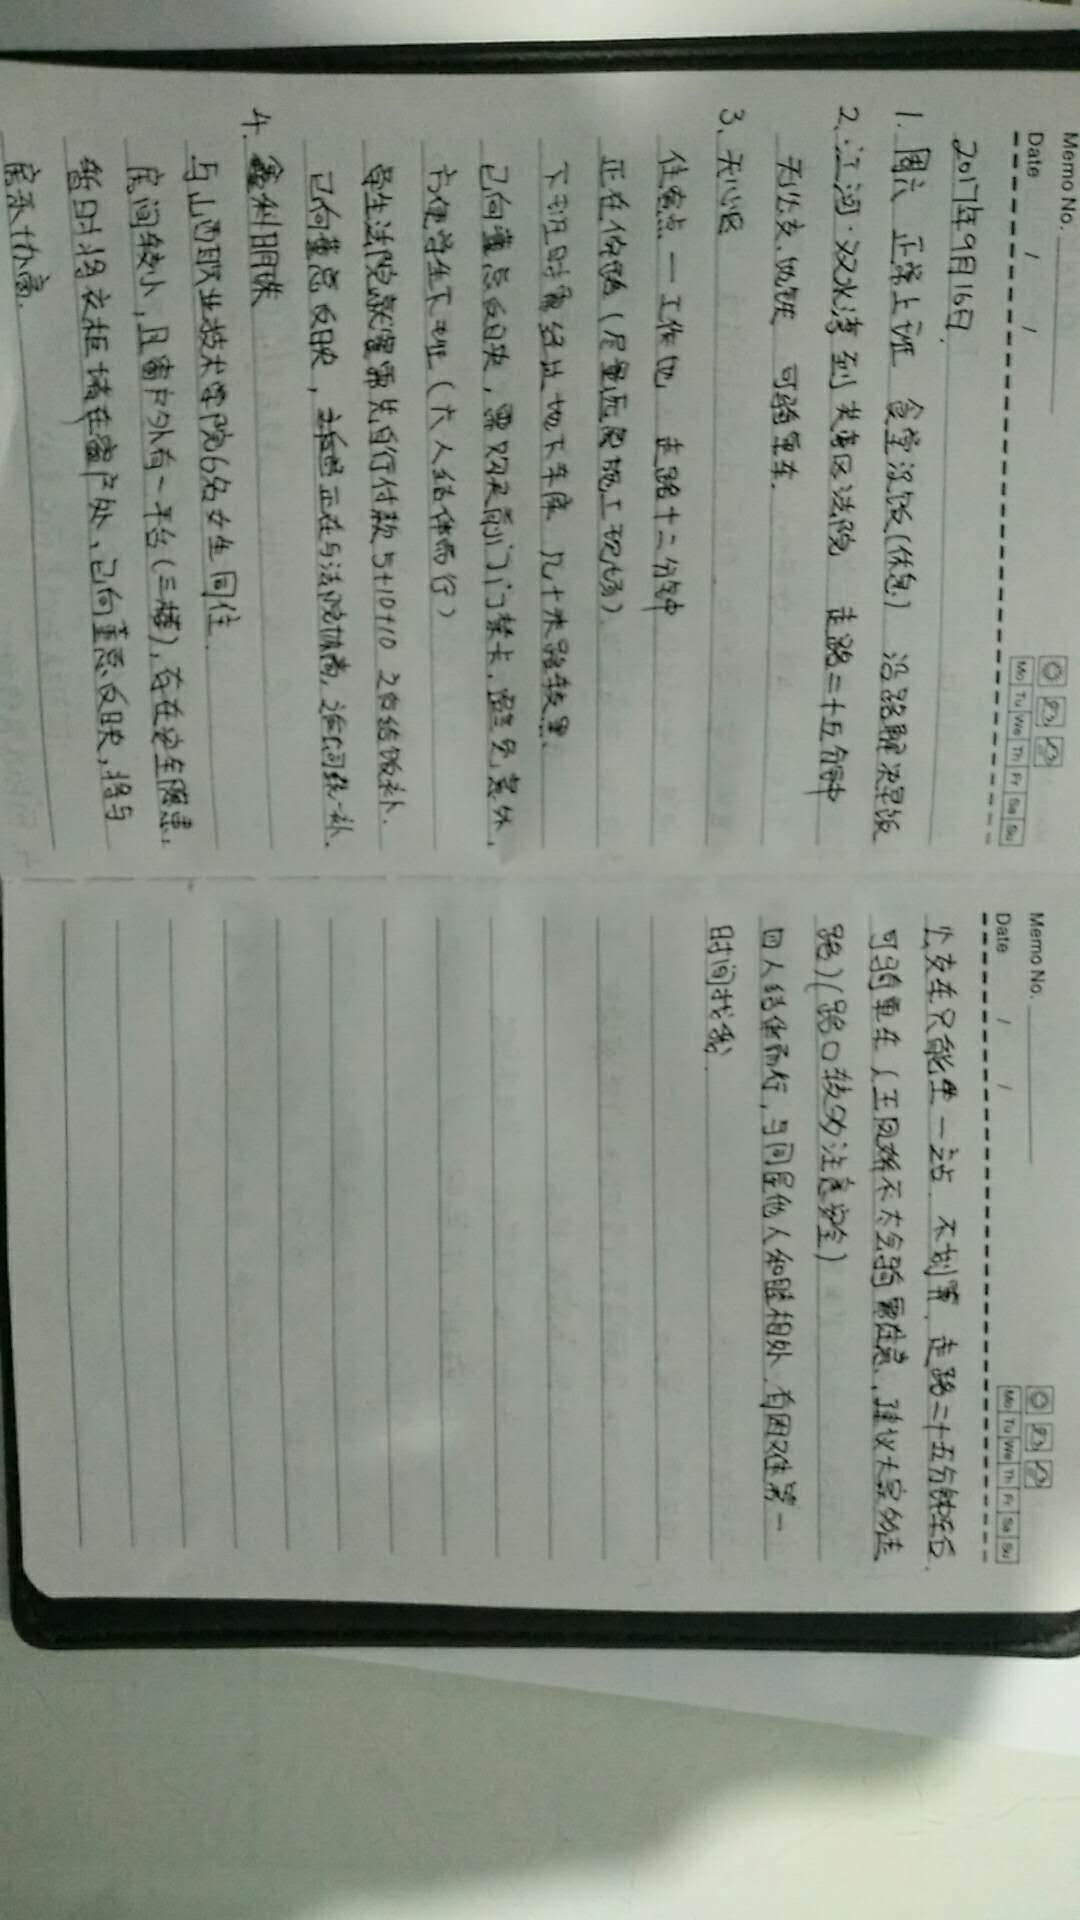 Memo No.
Date / /
Mo Tu We Th Fr Sa Su
2017年9月16日.
1. 周六 正常上班 食堂没饭(休息) 沿路解决早饭
2. 江河·双水湾到芙蓉区法院 走路二十五分钟
无公交、地铁 可骑单车.
3. 天心区
住宿点—工作地 走路十二分钟
正在修路(尽量远离施工现场)
下班时需经过地下车库 几十米路较黑.
已向董总反映,需购买南门门禁卡,留意意外,
方便学生下班(六人结伴而行)
学生法院就餐需先自行付款5+10+10 之后给饭补.
已向董总反映,正在与法院协商,近间统一补.
4. 鑫利明珠
与山西职业技术学院6名女生同住.
房间较小,且窗户外有一平台(三楼),存在安全隐患,
暂时将衣柜堵在窗户处,已向董总反映,将与
房东协商.
Memo No.
Date / /
Mo Tu We Th Fr Sa Su
公交车只能坐一站 不划算 走路二十五分钟左右.
可骑单车(王凤娇不太会骑需注意,建议大家多走
路)(路口较多注意安全)
四人结伴而行,与同屋他人和睦相处.有困难第一
时间找我.